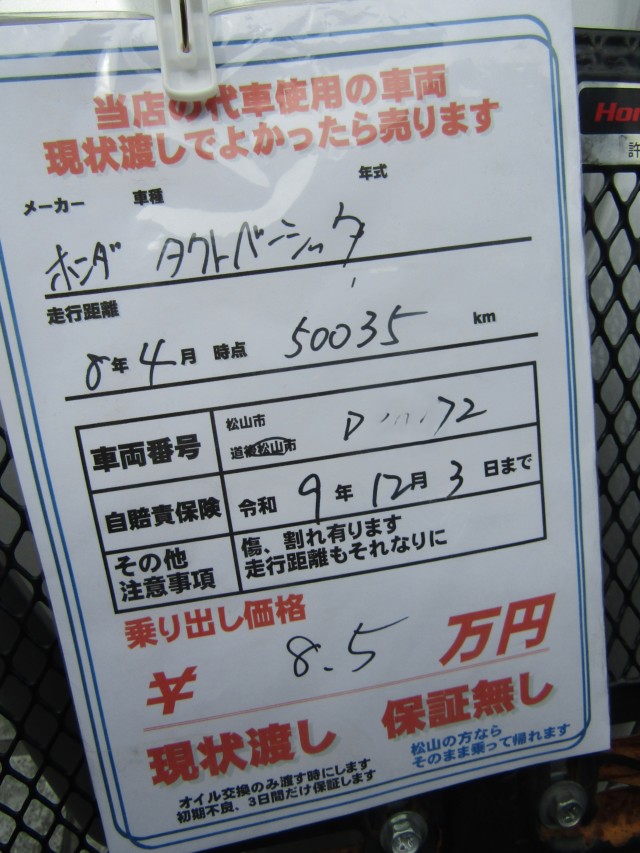 当店の代車使用の車両
現状渡しでよかったら売ります
メーカー 車種 年式
ホンダ タクトベーシック
走行距離
8年4月 時点 50035 km
車両番号
松山市
道後松山市
自賠責保険 令和 9年 12月 3日まで
その他
注意事項
傷、割れ有ります
走行距離もそれなりに
乗り出し価格
8.5 万円
現状渡し 保証無し
オイル交換のみ渡す時にします
初期不良、3日間だけ保証します
松山の方なら
そのまま乗って帰れます
Hon
許